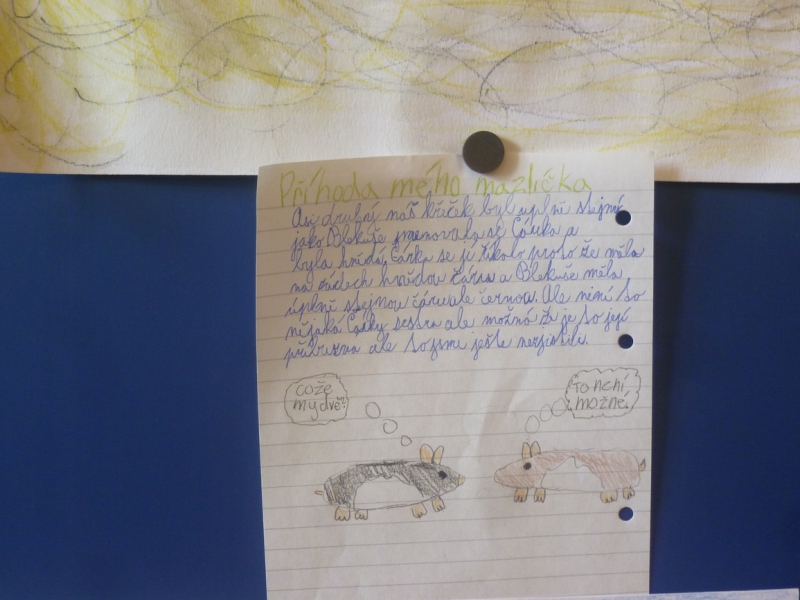 Příhoda mého mazlíčka
druhý náš křeček byl uplně stejný
jako Blekuše jmenovala se Čárka a
byla hnědá. Čárka se jí říkalo proto že měla
na zádech hnědou čáru a Blekuše měla
úplně stejnou čáru ale černou. Ale není to
nějaká Čárky sestra ale možná že je to její
příbuzna ale to jsme ještě nezjistili.
COŽE
MY DVĚ?
TO NENÍ
MOŽNÉ.